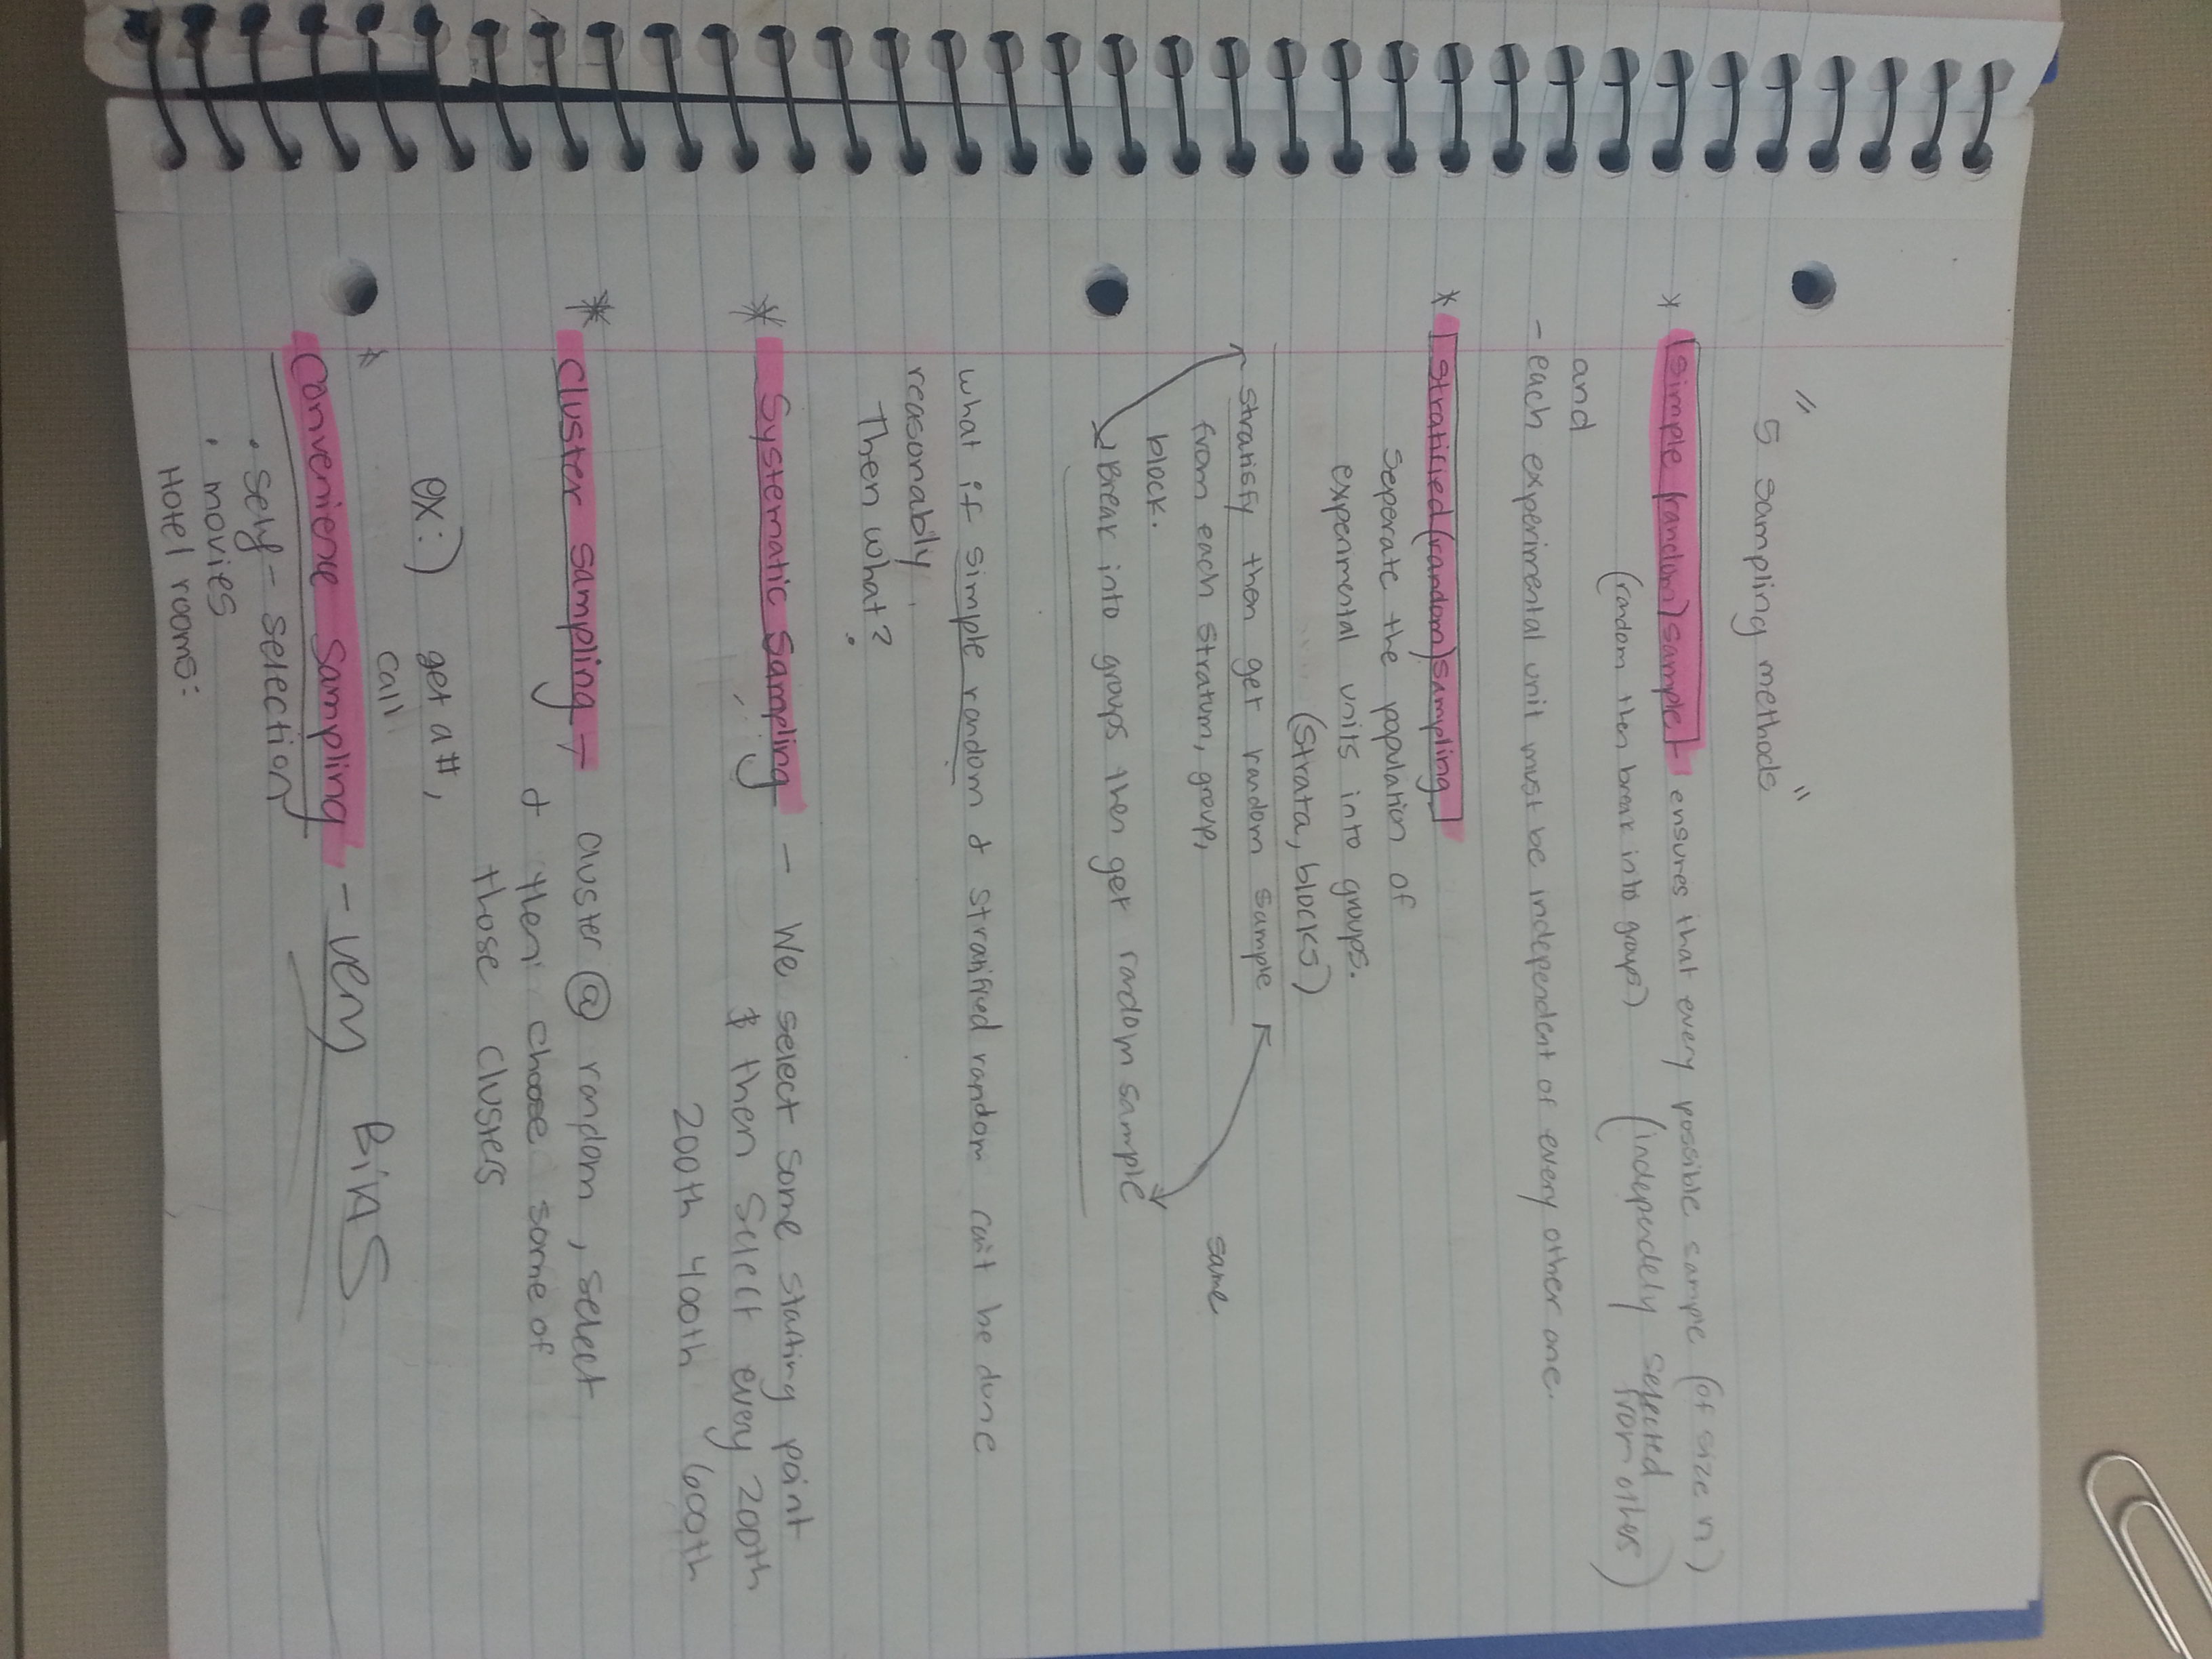 " 5 sampling methods "
* Simple (random) sample - ensures that every possible sample (of size n)
(random then break into groups) (independely selected
from other)
and
- each experimental unit must be independent of every other one.
* Stratified (random) sampling
Seperate the population of
expermental units into groups.
(Strata, blocks)
Stratisfy then get random sample
from each stratum, group,
block.
same
Break into groups then get random sample
what if simple random & stratified random can't be done
reasonably.
Then what?
* Systematic Sampling - We select some starting point
& then select every 200th
200th 400th 600th
* Cluster sampling - cluster @ random, select
& then choose some of
those clusters
ex:) get a #,
call
* Convenience sampling - very BiaS
. self-selection
. movies
Hotel rooms: